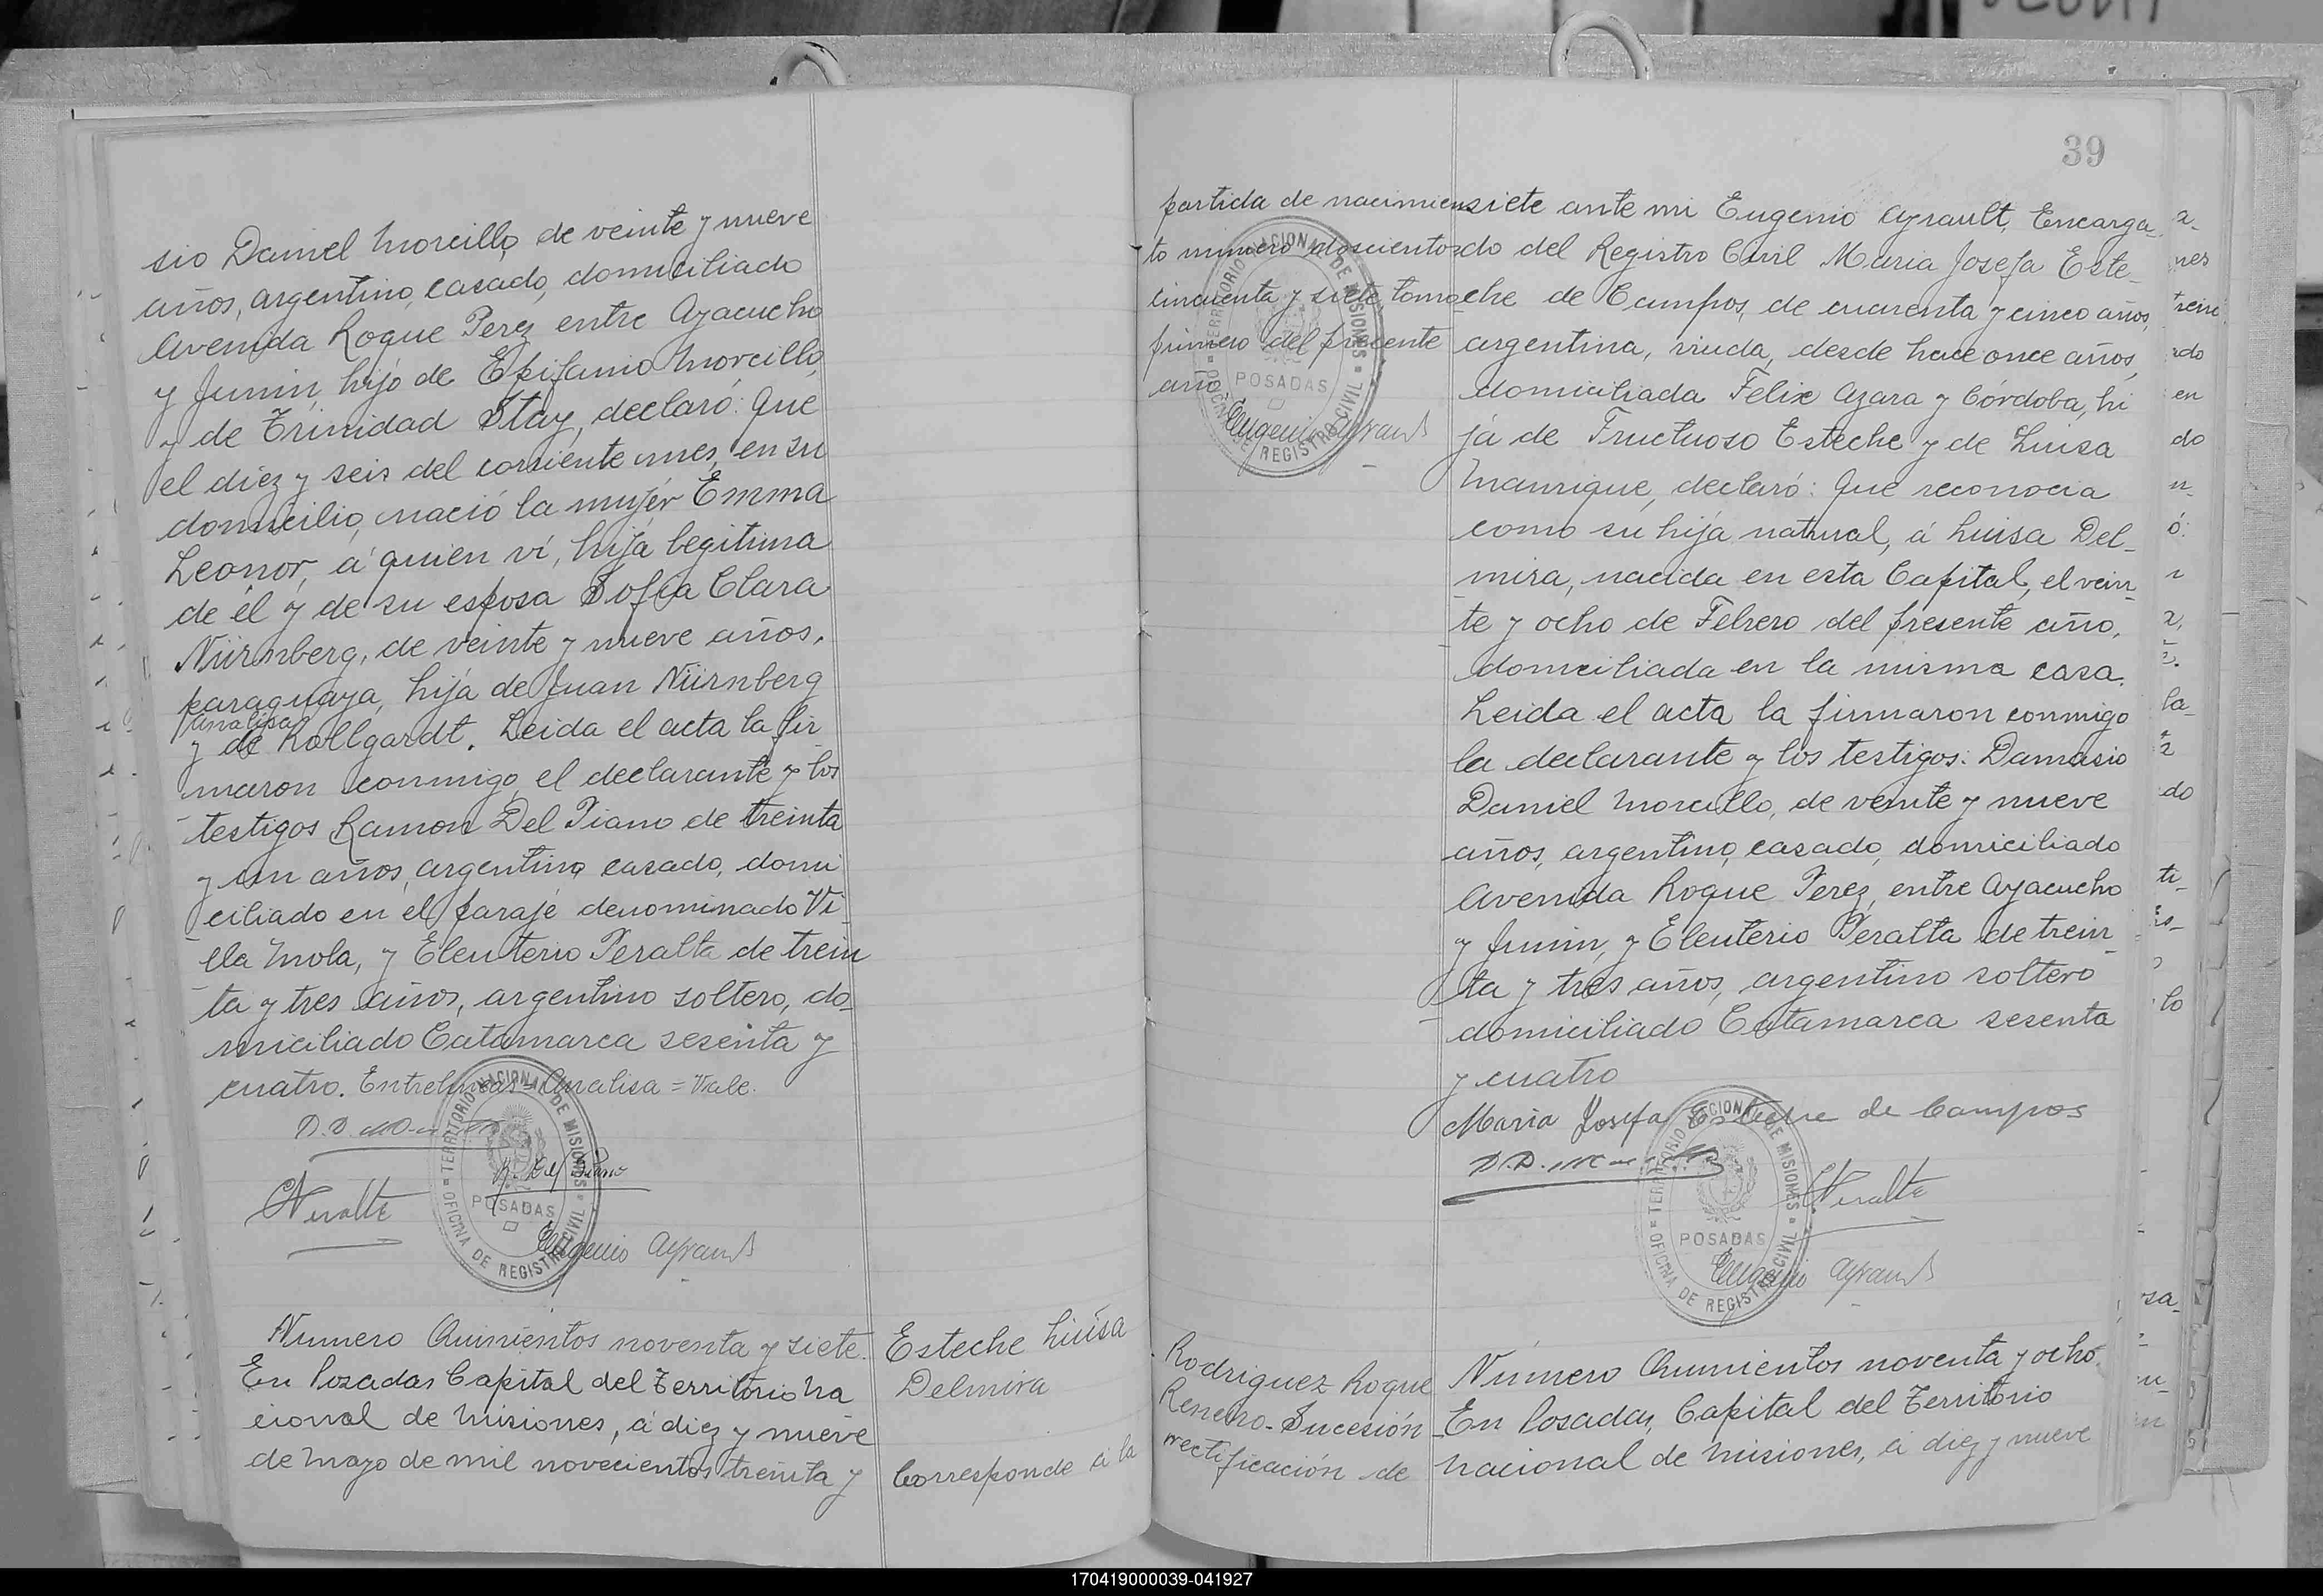 sio Daniel Morcillo, de veinte y nueve
años, argentino, casado, domiciliado
Avenida Roque Perez entre Ayacucho
y Junin, hijo de Epifanio Morcillo,
y de Trinidad Stay, declaró: Que
el diez y seis del corriente mes, en su
domicilio, nació la mujer Emma
Leonor, á quien ví, hija legitima
de él y de su esposa Sofia Clara
Nürnberg, de veinte y nueve años,
paraguaya, hija de Juan Nürnberg
Analisa
y de Kollgardt. Leida el acta la fir
maron conmigo, el declarante y los
testigos Ramon Del Piano de treinta
y un años, argentino casado, domi
ciliado en el paraje denominado Vi-
lla Mola, y Eleuterio Peralta de trein
ta y tres años, argentino soltero, do-
miciliado Catamarca sesenta y
cuatro. Entrelineas = Analisa = Vale.
D. D.
R. Del Piano
Peralta
Eugenio Ayrault
TERRITORIO NACIONAL DE MISIONES
POSADAS
OFICINA DE REGISTRO CIVIL
Numero Quinientos noventa y siete.
En Posadas Capital del Territorio Na
cional de Misiones, á diez y nueve
de Mayo de mil novecientos treinta y
Esteche Luisa
Delmira
Corresponde á la
39
partida de nacimien
to número doscientos
cincuenta y siete, tomo
primero del presente
año
Eugenio Ayrault
TERRITORIO NACIONAL DE MISIONES
POSADAS
OFICINA DE REGISTRO CIVIL
siete ante mi Eugenio Ayrault, Encarga-
do del Registro Civil Maria Josefa Este-
che de Campos, de cuarenta y cinco años,
argentina, viuda, desde hace once años,
domiciliada Felix Azara y Córdoba, hi
ja de Fructuoso Esteche y de Luisa
Manrique, declaró: Que reconocia
como su hija natural, á Luisa Del-
mira, nacida en esta Capital, el vein-
te y ocho de Febrero del presente año,
domiciliada en la misma casa.
Leida el acta la firmaron conmigo
la declarante y los testigos: Damasio
Daniel Morcillo, de veinte y nueve
años, argentino, casado, domiciliado
Avenida Roque Perez, entre Ayacucho
y Junin, y Eleuterio Peralta de trein-
ta y tres años, argentino soltero
domiciliado Catamarca sesenta
y cuatro
Maria Josefa Esteche de Campos
D. D.
Peralta
Eugenio Ayrault
TERRITORIO NACIONAL DE MISIONES
POSADAS
OFICINA DE REGISTRO CIVIL
Rodriguez Roque
Renero - Sucesión
rectificación de
Número Quinientos noventa y ocho.
En Posadas, Capital del Territorio
Nacional de Misiones, á diez y nueve
170419000039-041927